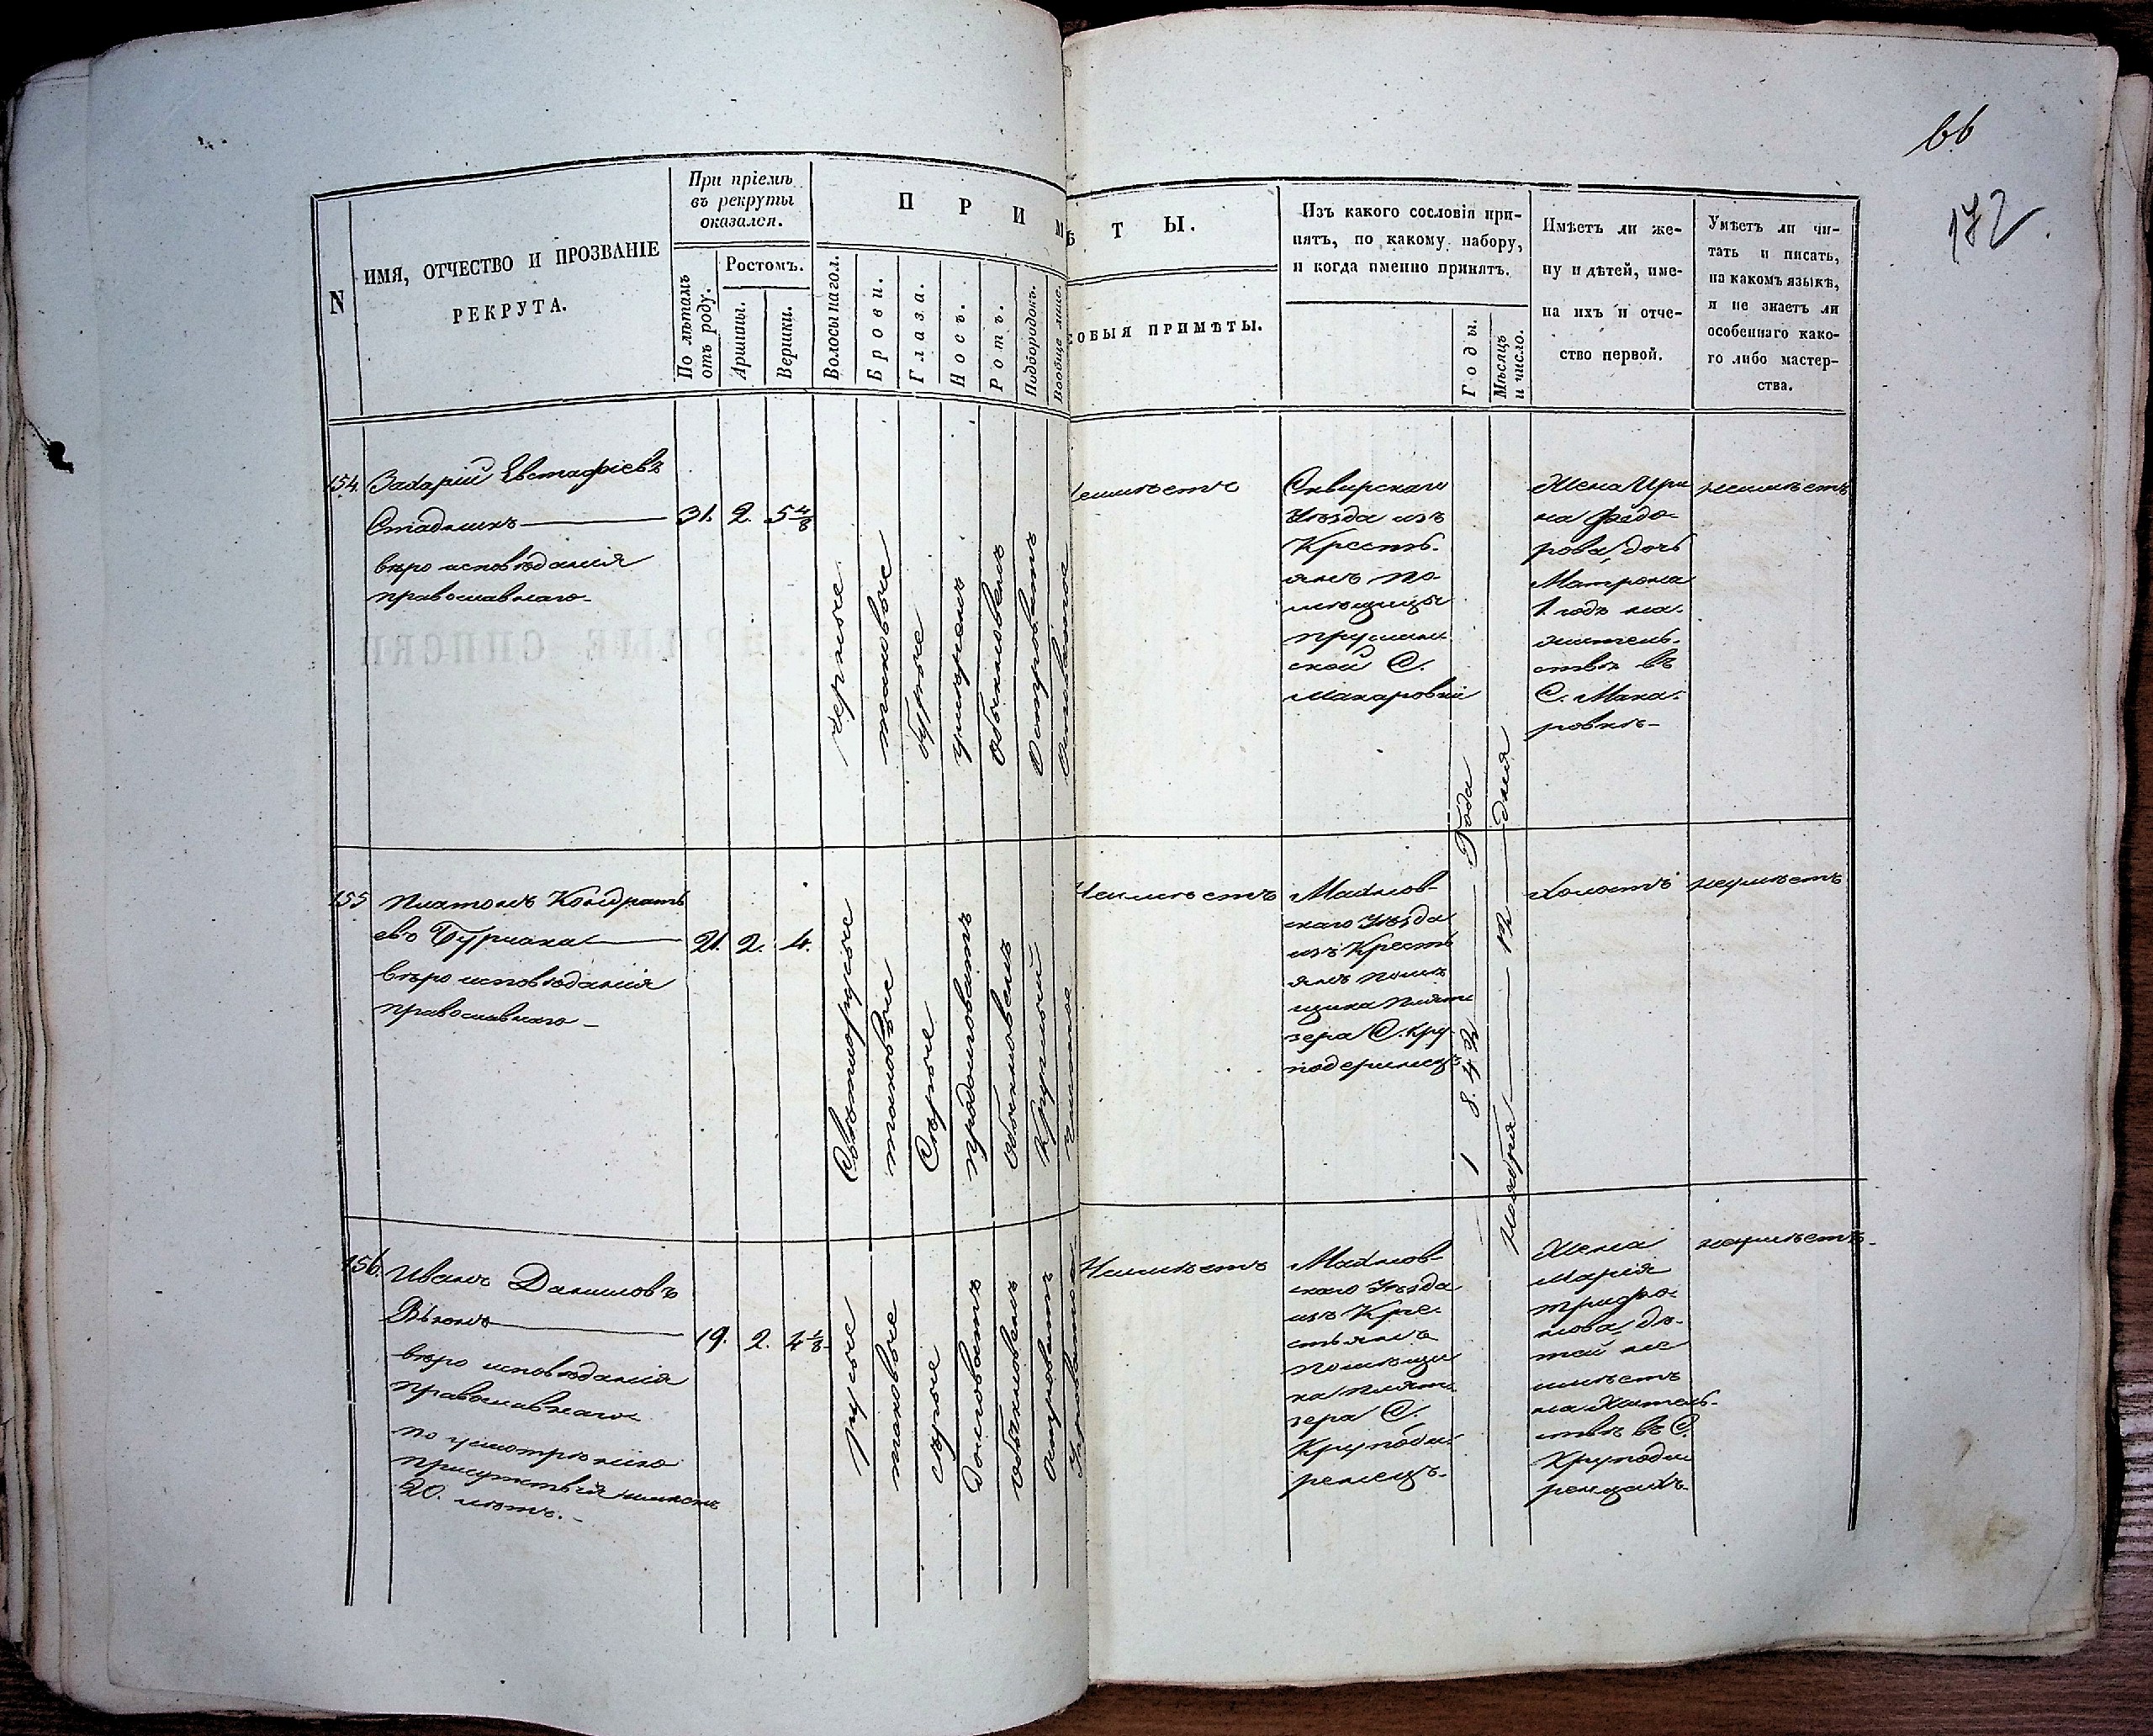 66
172
N
ИМЯ, ОТЧЕСТВО И ПРОЗВАНІЕ
РЕКРУТА.
При пріемѣ
въ рекруты
оказался.
По лѣтамъ
отъ роду.
Ростомъ.
Аршины.
Вершки.
П Р И М
Волосы на гол.
Брови.
Глаза.
Носъ.
Ротъ.
Подбородокъ.
Вообще лице.
Ѣ Т Ы.
ОБЫЯ ПРИМѢТЫ.
Изъ какого сословія при-
нятъ, по какому набору,
и когда именно принятъ.
Годы.
Мѣсяцъ
и число.
Имѣетъ ли же-
ну и дѣтей, име-
на ихъ и отче-
ство первой.
Умѣетъ ли чи-
тать и писать,
на какомъ языкѣ,
и не знаетъ ли
особеннаго како-
го либо мастер-
ства.
154.
Захарій Евстафіевъ
Стадникъ
вѣро исповѣданія
православнаго
31.
2.
5 4/8
черные
таковые
бурые
умѣренъ
обыкновенъ
Островатъ
неимѣетъ
Сквирскаго
Уѣзда изъ
Кресть-
янъ по-
мѣщицы
Прушин
ской С.
Макаровки
Жена Ири
на Федо-
рова, дочь
Матрона
1 годъ на
житель-
ствѣ въ
С. Мака-
ровкѣ
неумѣетъ
155
Платонъ Кондрать
евъ Бурлака
вѣро исповѣданія
православнаго
21.
2.
4.
Свѣтлорусые
таковые
Сѣрые
продолговатъ
обыкновенъ
Круглый
чистое
Неимѣетъ
Махнов-
скаго Уѣзда
изъ Кресть
янъ помѣ
щика
зера С. Кру-
подеринецъ
1842 Года
Ноября 12 дня
Холостъ
неумѣетъ
156.
Иванъ Даниловъ
Вьюнъ
вѣро исповѣданія
православнаго
по усмотрѣнію
присутствія имѣетъ
20. лѣтъ.
19.
2.
4 1/8
русые
таковые
сѣрые
долговатъ
обыкновенъ
островатъ
Неимѣетъ
Махнов-
скаго Уѣзда
изъ Кре-
стьянъ
помѣщи
ка
зера С.
Круподе-
ренецъ
Жена
Марія
Трифо-
нова, дѣ-
тей не
имѣетъ
на житель-
ствѣ въ С.
Круподе
ренцахъ
неумѣетъ